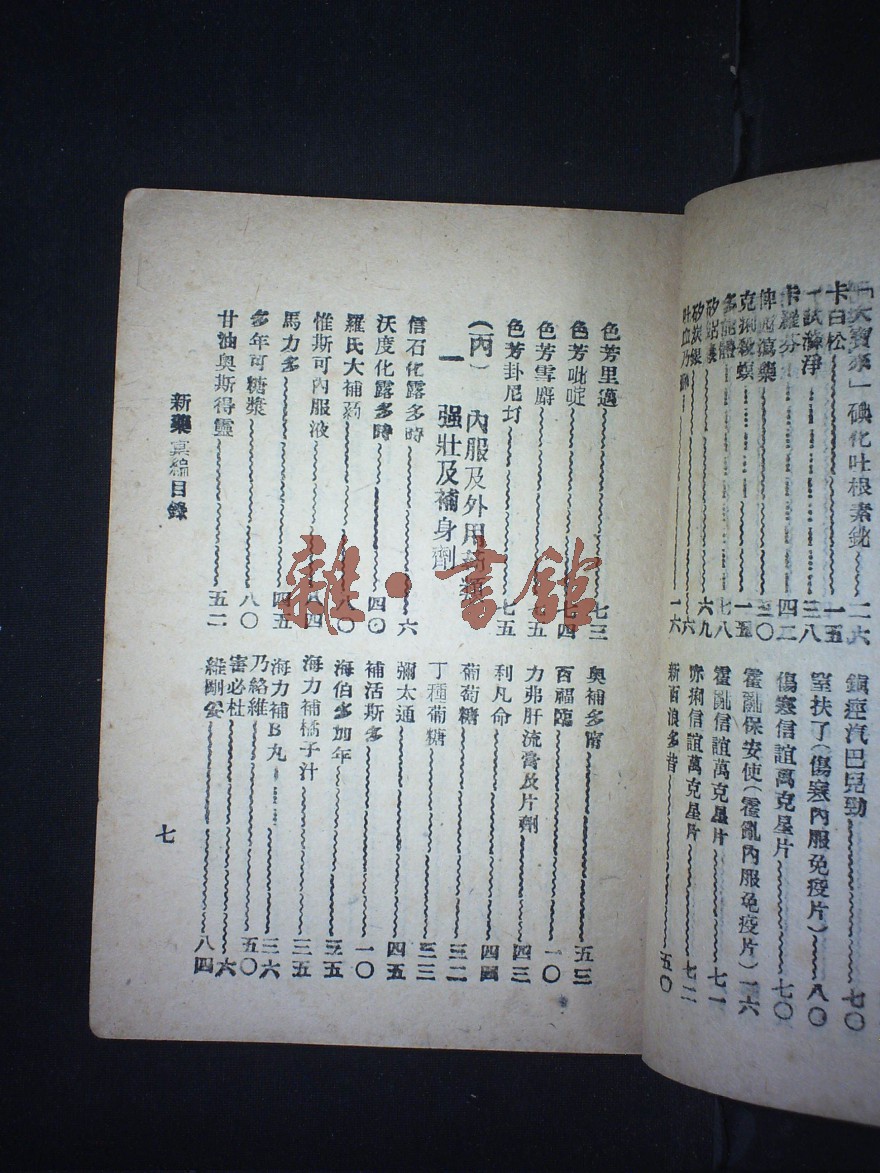 「大寶麥」碘化吐根素鉍 二六
卡白松 一五
一試藻淨 三八
卡羅芬 四二
克痢殺蟆 一五
鎮痙汽巴見勁 七〇
窒扶了(傷寒內服免疫片) 八〇
傷寒信誼萬克星片 七〇
霍亂保安使(霍亂內服免疫片) 一六
霍亂信誼萬克星片 七一
赤痢信誼萬克星片 七二
新百浪多昔 五〇
色芳里邁 七三
色芳吡啶 七四
色芳雪麝 七五
色芳卦尼圢 七五
(丙) 內服及外用新藥
一 强壯及補身劑
信石化露多時 六
沃度化露多時 四〇
羅氏大補葯 八〇
惟斯可內服液 八四
馬力多 四五
多年可糖漿 八〇
甘油奥斯得靈 五二
奥補多甯 五三
百福臨 一〇
力弗肝流膏及片劑 四三
利凡命 四四
葡萄糖 三二
丁種葡糖 三三
彌太通 四五
補活斯多 一〇
海伯多加年 三五
海力補橘子汁 三五
海力補B丸 三六
乃絡維 五〇
審必杜 六
維剛安 八四
新藥彙編目錄
七
雜·書館